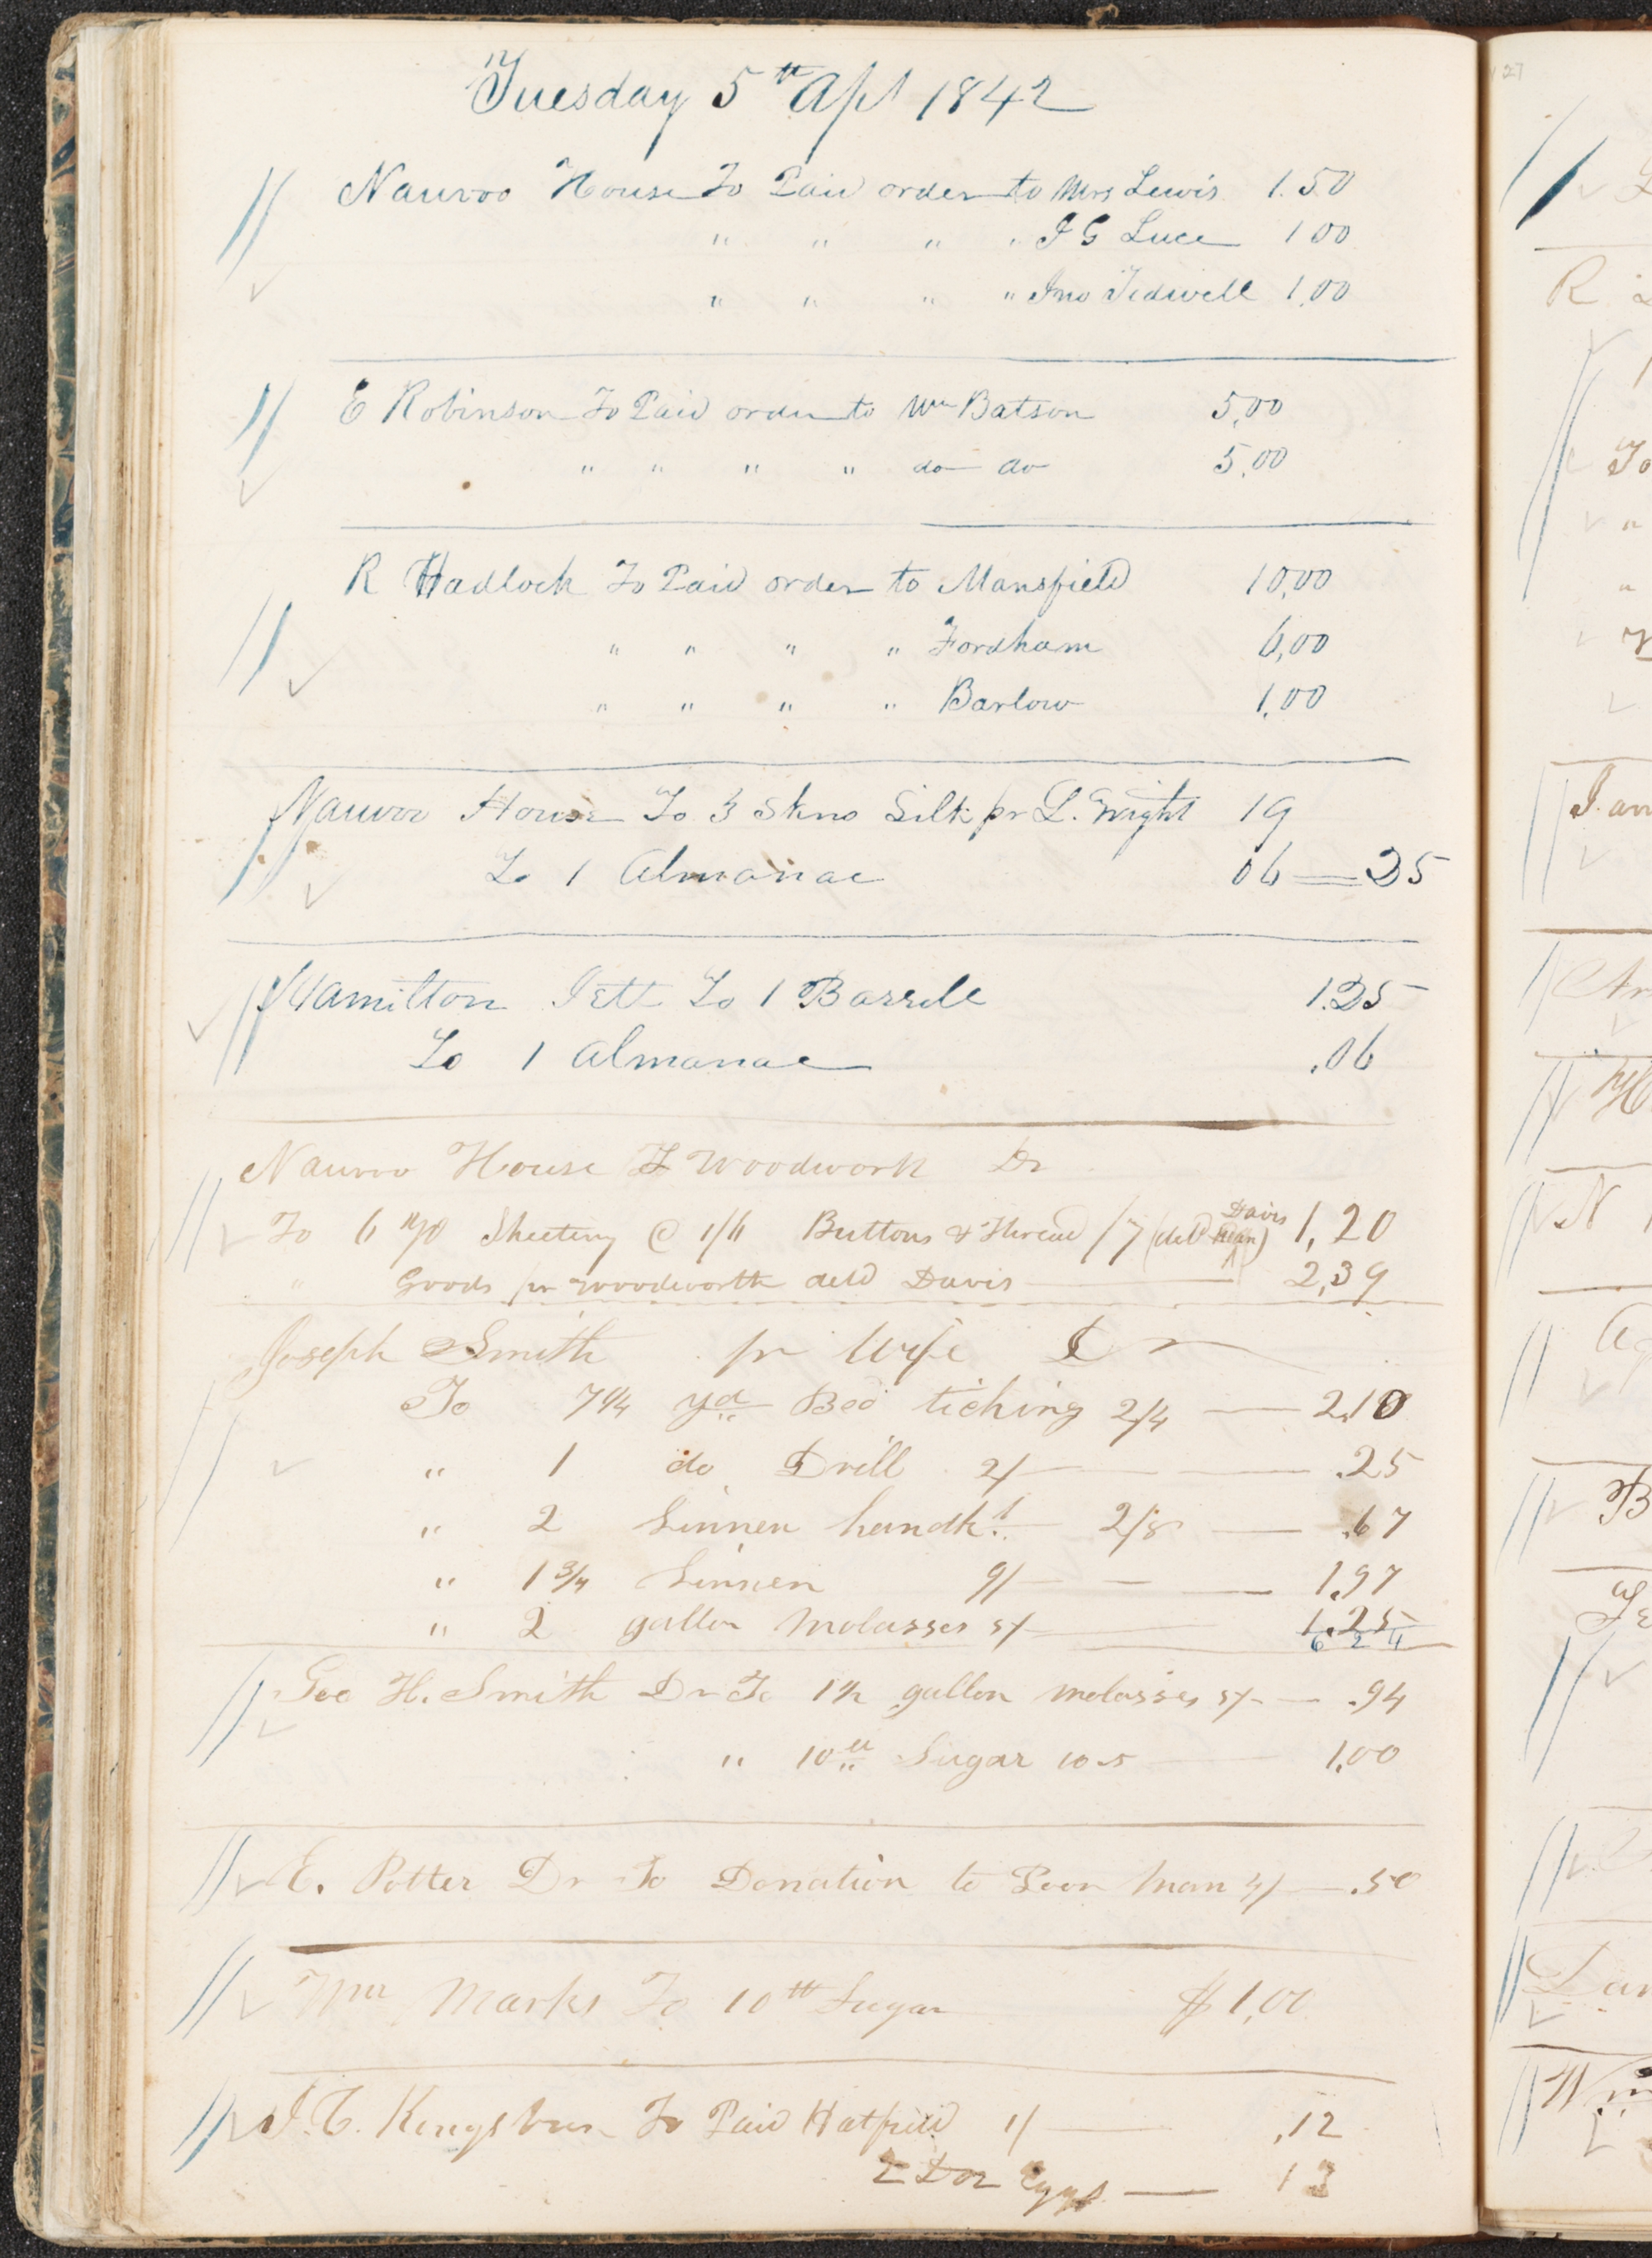 Tuesday 5th Apl 1842
Nauvoo House To Paid order to Mrs Lewis 1.50
" " " " J G Luce 1 00
" " " " Jno Tidwell 1.00
E Robinson To Paid order to Wm Batson 5,00
" " " " do do 5.00
R Hadlock To Paid order to Mansfield 10,00
" " " " Fordham 6,00
" " " " Barlow 1,00
Nauvoo House To 3 Skns Silk pr L. Wight 19
To 1 Almanac 06 = 25
Hamilton Jett To 1 Barrell 1.25
To 1 Almanac .06
Nauvoo House Woodwork Dr
To 6 yds Sheeting @ 1/6 Buttons & Thread /7 (deld Davis) 1,20
" Goods pr Woodworth deld Davis 2,39
Joseph Smith pr Wife Dr
To 7 1/4 yd Bed ticking 2/4 — 2.10
" 1 do Drill 2/ — .25
" 2 Linnen handkf 2/8 — .67
" 1 3/4 Linnen 9/ — 1.97
" 2 gallon Molasses 5/ — 1.25
6 2 4
Geo H. Smith Dr To 1 1/2 gallon molasses 5/ — .94
" 10 lb Sugar 10-s 1,00
E. Potter Dr To Donation to Poor Man 4/ — .50
Wm Marks To 10 lb Sugar $1,00
J. C. Kingsbury To Paid Hatfield 1/ — ,12
2 Doz Eggs — 13
127
R
To
"
"